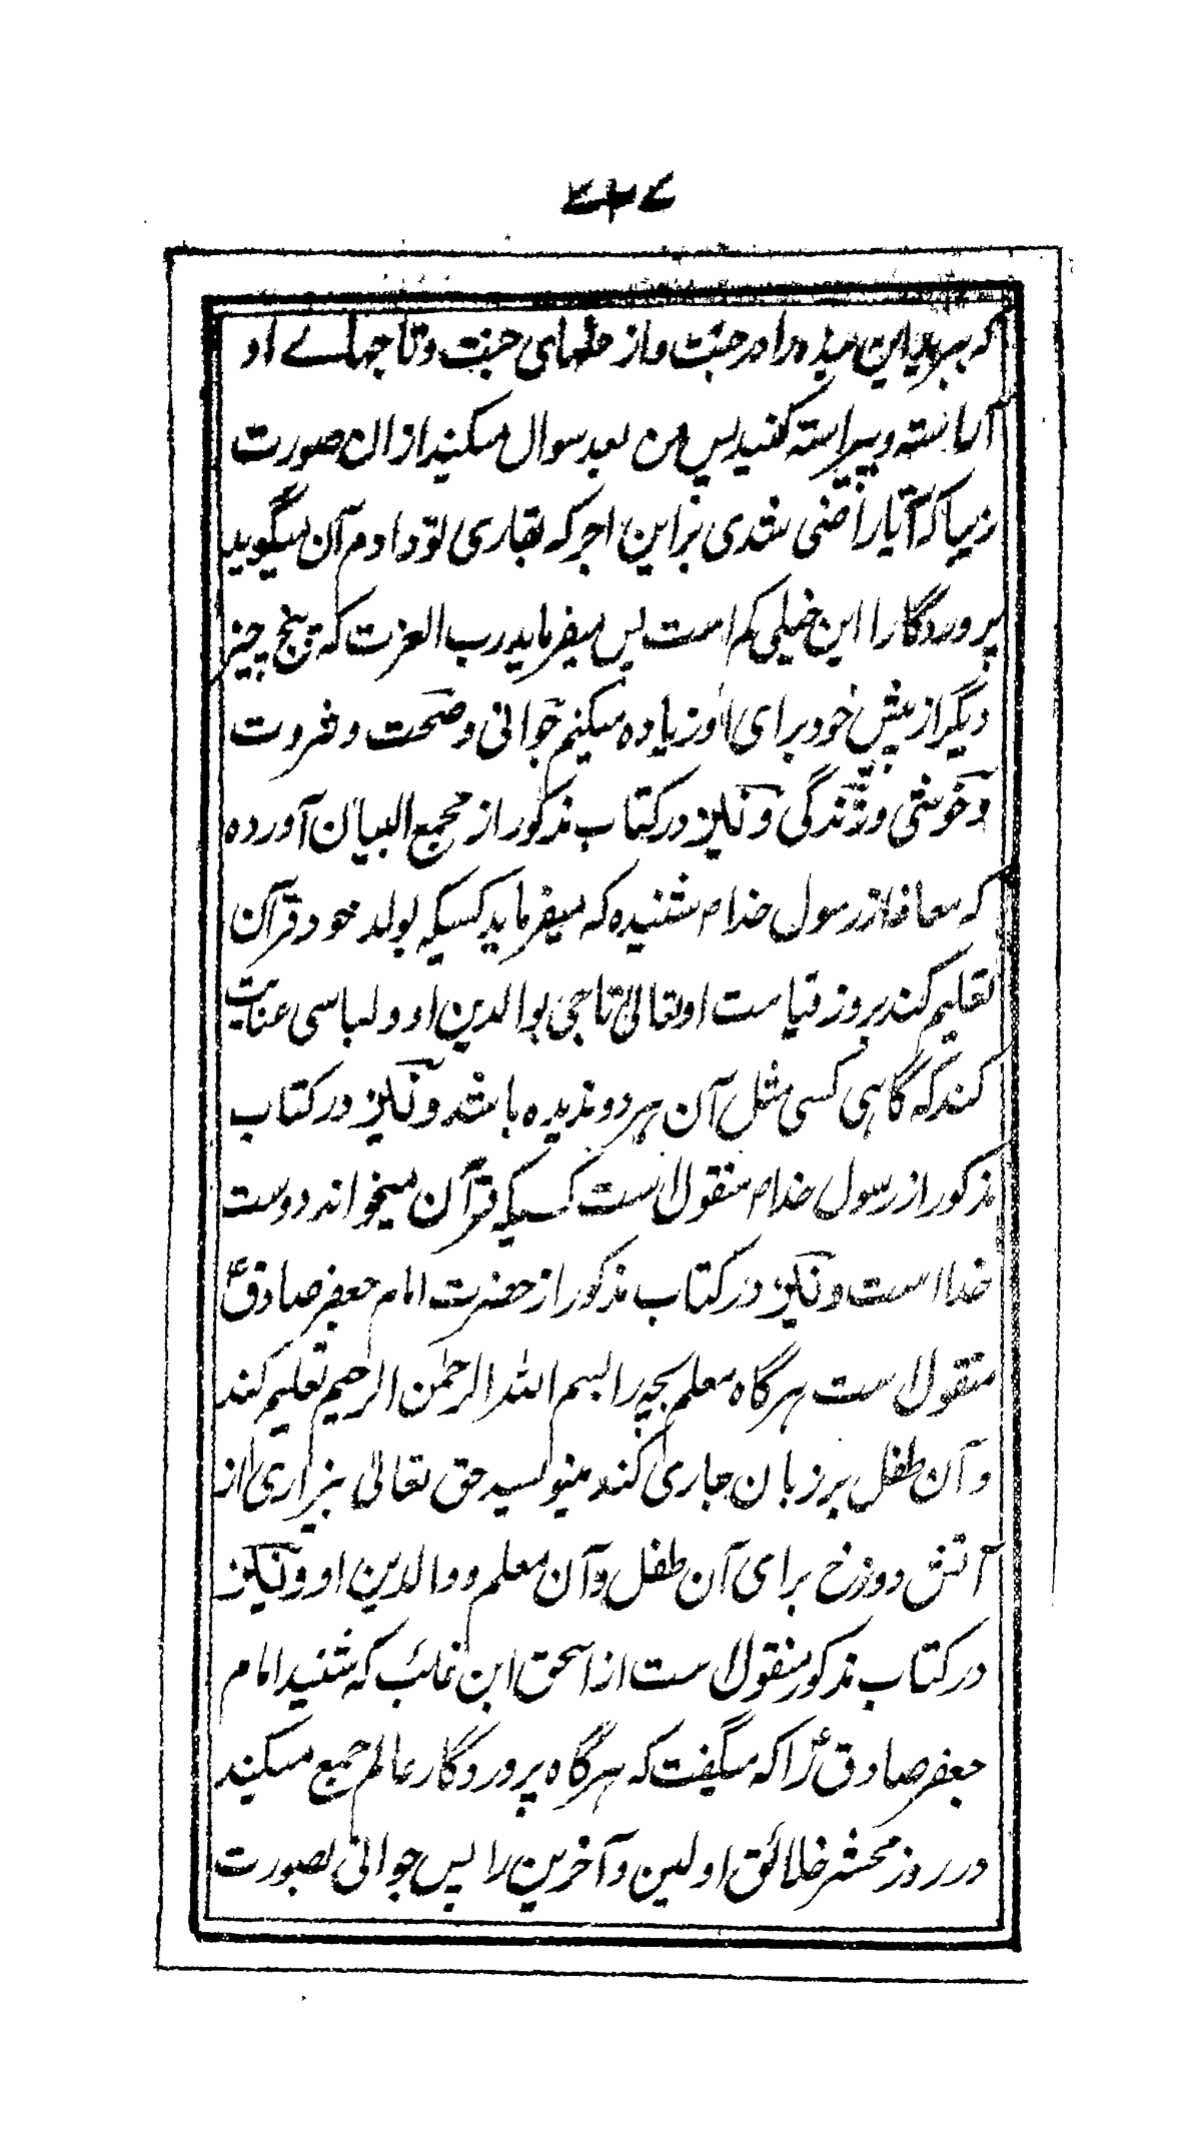 که ببرید این بنده را در جنت و از حلهای جنت و تاجهاے او
آراسته و پیراسته کنید پس من بعد سوال میکند ازان صورت
زیبا که آیا راضی شدی بر این اجر که بقاری تو دادم آن میگوید
پروردگارا این خیلی کم است پس میفرماید رب العزت که پنج چیز
دیگر از پیش خود برای او زیاده میکنم جوانی و صحت و ثروت
و خوشی و زندگی و نیز در کتاب مذکور از مجمع البیان آورده
که معاذ از رسول خدام شنیده که میفرماید کسیکه بولد خود قرآن
تعلیم کند بروز قیامت او تعالیٰ تاجی بوالدین او و لباسی عنایت
کند که گاهی کسی مثل آن هر دو ندیده باشد و نیز در کتاب
مذکور از رسول خدام منقول است کسیکه قرآن میخواند دوست
خدا است و نیز در کتاب مذکور از حضرت امام جعفر صادقؑ
منقول است هرگاه معلم بچه را بسم الله الرحمٰن الرحیم تعلیم کند
و آن طفل بر زبان جاری کند مینویسد حق تعالیٰ بیزاری از
آتش دوزخ برای آن طفل و آن معلم و والدین او و نیز
در کتاب مذکور منقول است از اسحق ابن غالب که شنید امام
جعفر صادقؑ را که میگفت که هرگاه پروردگار عالم جمع میکند
در روز محشر خلائق اولین و آخرین را پس جوانی بصورت